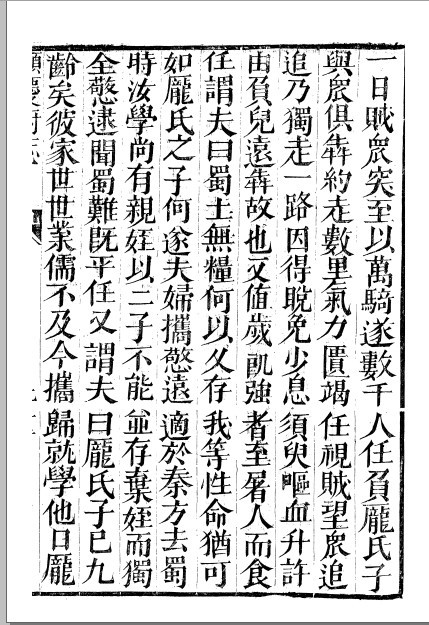 一日賊眾突至以萬騎逐數千人任負龐氏子
與眾俱犇約走數里氣力匱竭任視賊望眾追
追乃獨走一路因得脫免少息須臾嘔血升許
由負兒遠犇故也又值歲飢強者至屠人而食
任謂夫曰蜀土無糧何以久存我等性命猶可
如龐氏之子何遂夫婦攜憼遠適於秦方去蜀
時汝學尚有親姪以二子不能並存棄姪而獨
全憼逮聞蜀難既平任又謂夫曰龐氏子已九
齡矣彼家世世業儒不及今攜歸就學他日龐